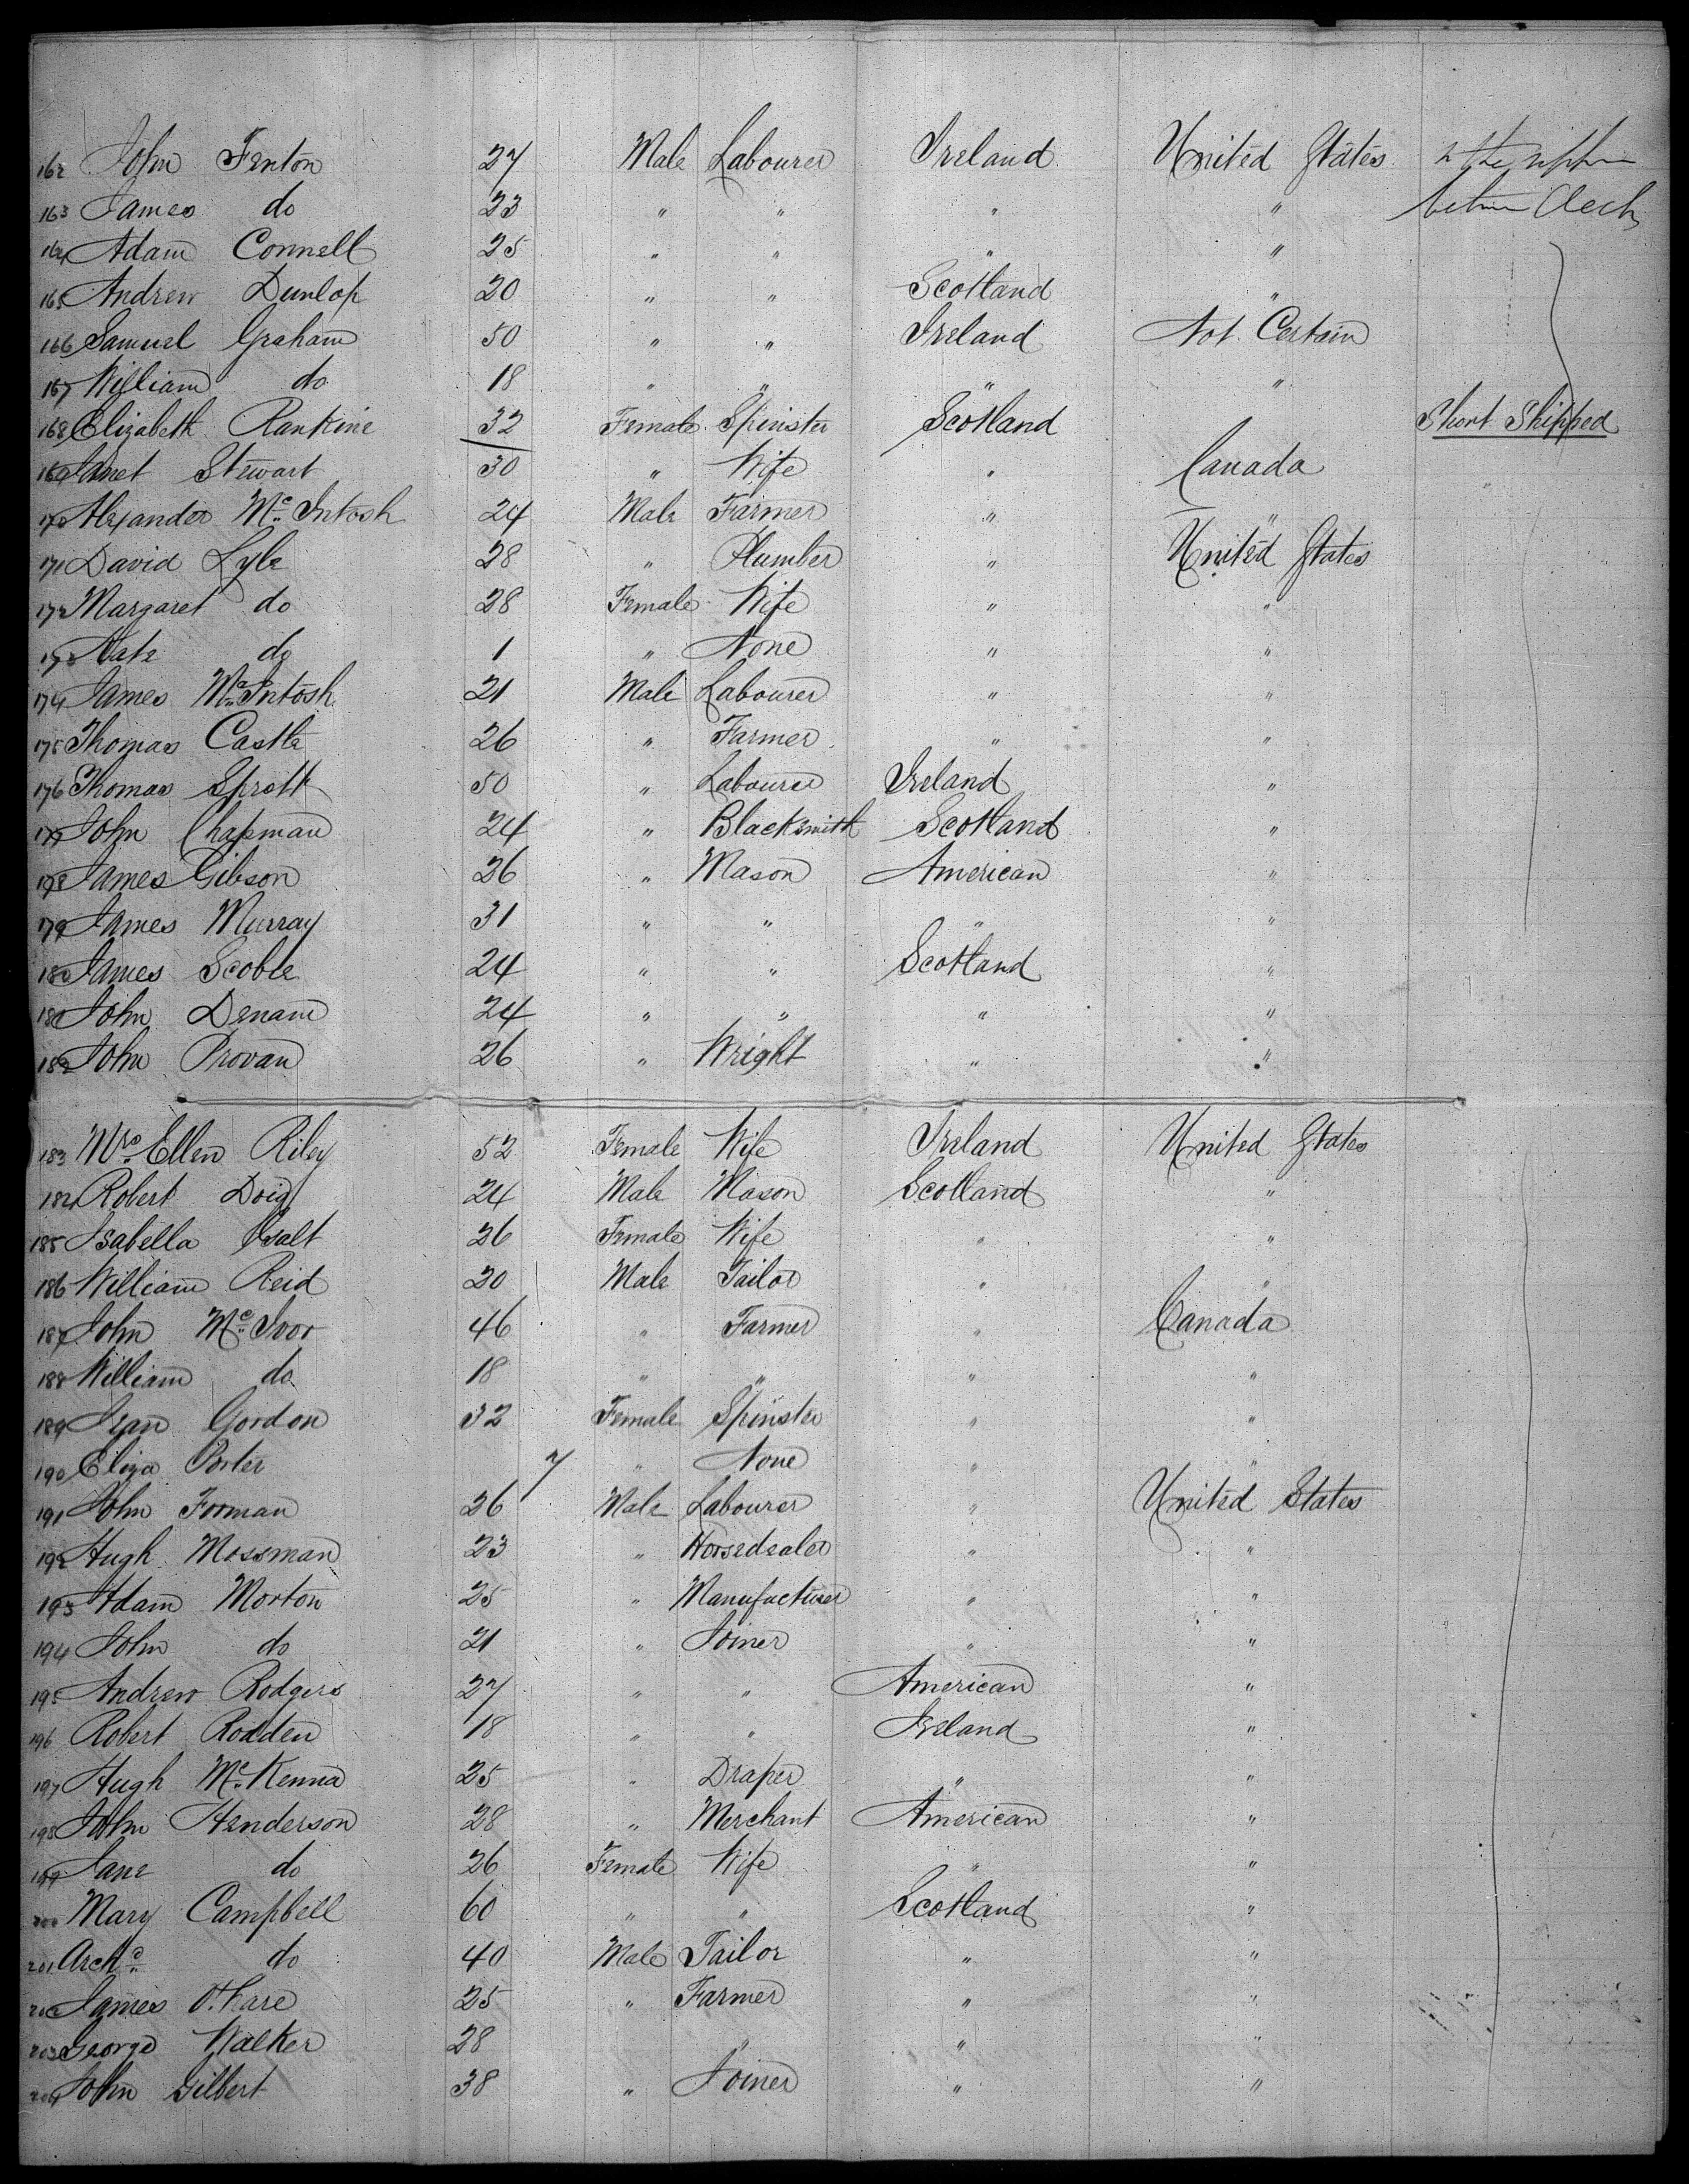 162 John Fenton 27 Male Labourer Ireland United States in the upper
163 James do 23 " " " " between Deck
164 Adam Connell 25 " " " "
165 Andrew Dunlop 20 " " Scotland "
166 Samuel Graham 50 " " Ireland Not Certain
167 William do 18 " " " "
168 Elizabeth Rankine 32 Female Spinster Scotland Short Shipped
169 Janet Stewart 30 " Wife " Canada
170 Alexander McIntosh 24 Male Farmer " "
171 David Lyle 28 " Plumber " United States
172 Margaret do 28 Female Wife " "
173 Kate do 1 " None " "
174 James McIntosh 21 Male Labourer " "
175 Thomas Castle 26 " Farmer " "
176 Thomas Sprott 50 " Labourer Ireland "
177 John Chapman 24 " Blacksmith Scotland "
178 James Gibson 26 " Mason American "
179 James Murray 31 " " " "
180 James Scobie 24 " " Scotland "
181 John Denam 24 " " " "
182 John Provan 26 " Wright " "
183 Mrs Ellen Riley 52 Female Wife Ireland United States
184 Robert Doig 24 Male Mason Scotland "
185 Isabella Galt 26 Female Wife " "
186 William Reid 20 Male Tailor " "
187 John McIvor 46 " Farmer " Canada
188 William do 18 " " " "
189 Jean Gordon 32 Female Spinster " "
190 Eliza Porter 7 " None " "
191 John Forman 26 Male Labourer " United States
192 Hugh Mossman 23 " Horsedealer " "
193 Adam Morton 25 " Manufacturer " "
194 John do 21 " Joiner " "
195 Andrew Rodgers 27 " " American "
196 Robert Rodden 18 " " Ireland "
197 Hugh McKenna 25 " Draper " "
198 John Henderson 28 " Merchant American "
199 Jane do 26 Female Wife " "
200 Mary Campbell 60 " " Scotland "
201 Archd do 40 Male Tailor " "
202 James O'Hare 25 " Farmer " "
203 George Walker 28 " " "
204 John Gilbert 38 " Joiner " "